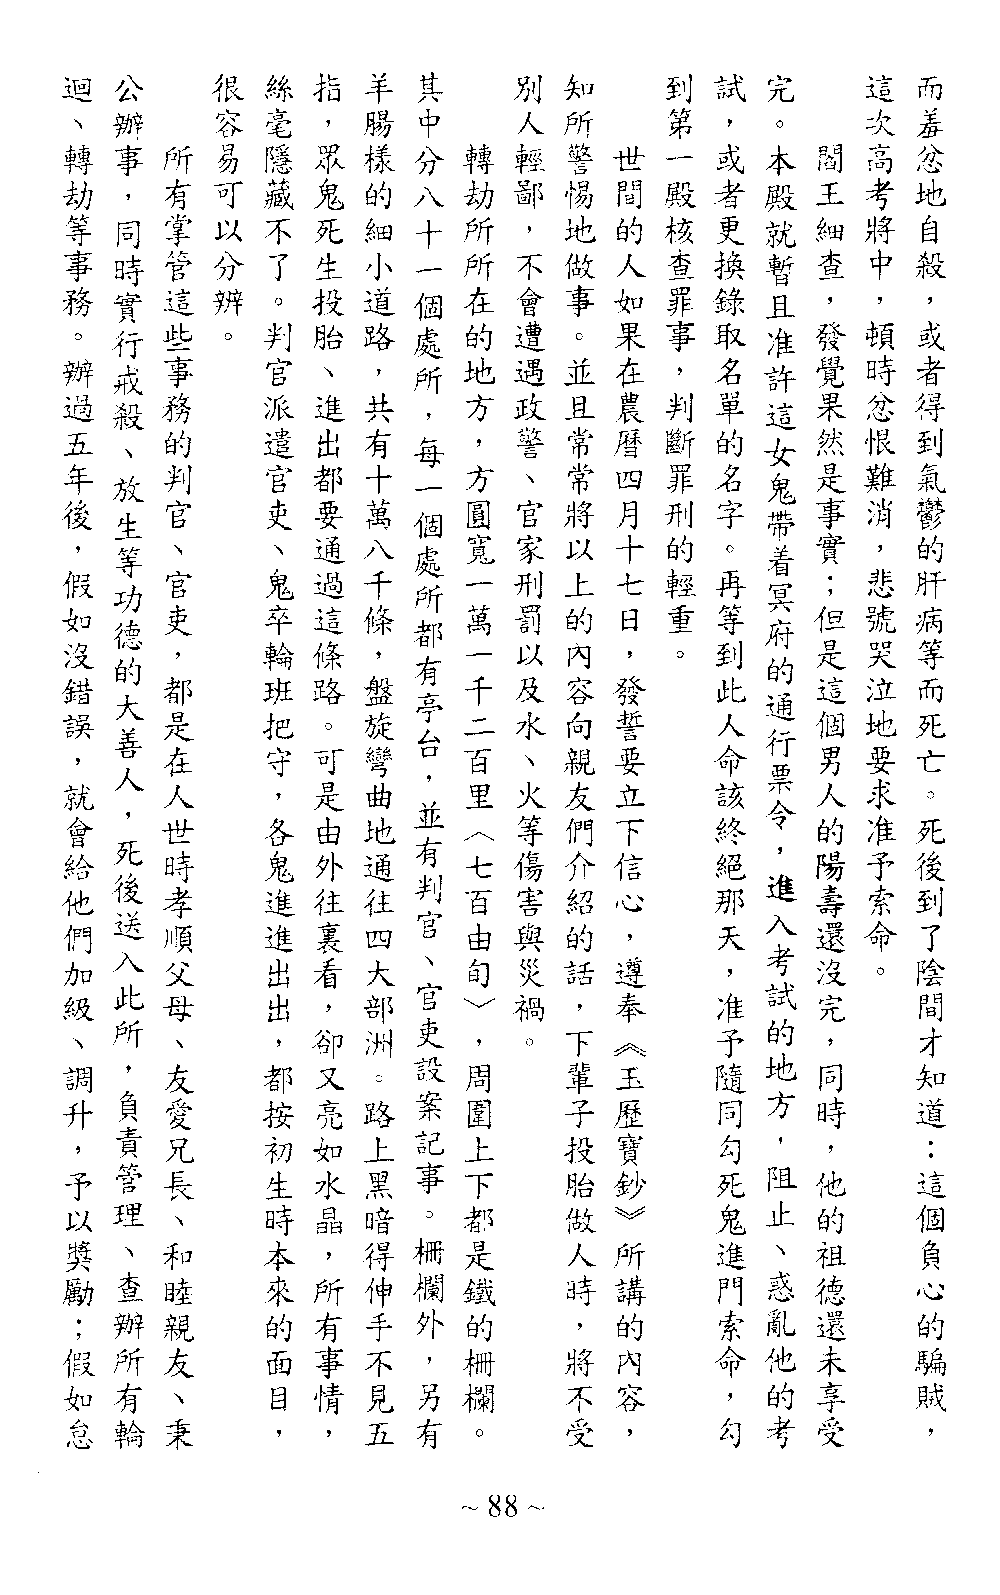 而羞忿地自殺，或者得到氣鬱的肝病等而死亡。死後到了陰間才知道：這個負心的騙賊，
這次高考將中，頓時忿恨難消，悲號哭泣地要求准予索命。
閻王細查，發覺果然是事實；但是這個男人的陽壽還沒完，同時，他的祖德還未享受
完。本殿就暫且准許這女鬼帶着冥府的通行票令，進入考試的地方，阻止、惑亂他的考
試，或者更換錄取名單的名字。再等到此人命該終絕那天，准予隨同勾死鬼進門索命，勾
到第一殿核查罪事，判斷罪刑的輕重。
世間的人如果在農曆四月十七日，發誓要立下信心，遵奉《玉歷寶鈔》所講的內容，
知所警惕地做事。並且常常將以上的內容向親友們介紹的話，下輩子投胎做人時，將不受
別人輕鄙，不會遭遇政警、官家刑罰以及水、火等傷害與災禍。
轉劫所所在的地方，方圓寬一萬一千二百里〈七百由旬〉，周圍上下都是鐵的柵欄。
其中分八十一個處所，每一個處所都有亭台，並有判官、官吏設案記事。柵欄外，另有
羊腸樣的細小道路，共有十萬八千條，盤旋彎曲地通往四大部洲。路上黑暗得伸手不見五
指，眾鬼死生投胎、進出都要通過這條路。可是由外往裏看，卻又亮如水晶，所有事情，
絲毫隱藏不了。判官派遣官吏、鬼卒輪班把守，各鬼進進出出，都按初生時本來的面目，
很容易可以分辨。
所有掌管這些事務的判官、官吏，都是在人世時孝順父母、友愛兄長、和睦親友、秉
公辦事，同時實行戒殺、放生等功德的大善人，死後送入此所，負責管理、查辦所有輪
迴、轉劫等事務。辦過五年後，假如沒錯誤，就會給他們加級、調升，予以獎勵；假如怠
~ 88 ~